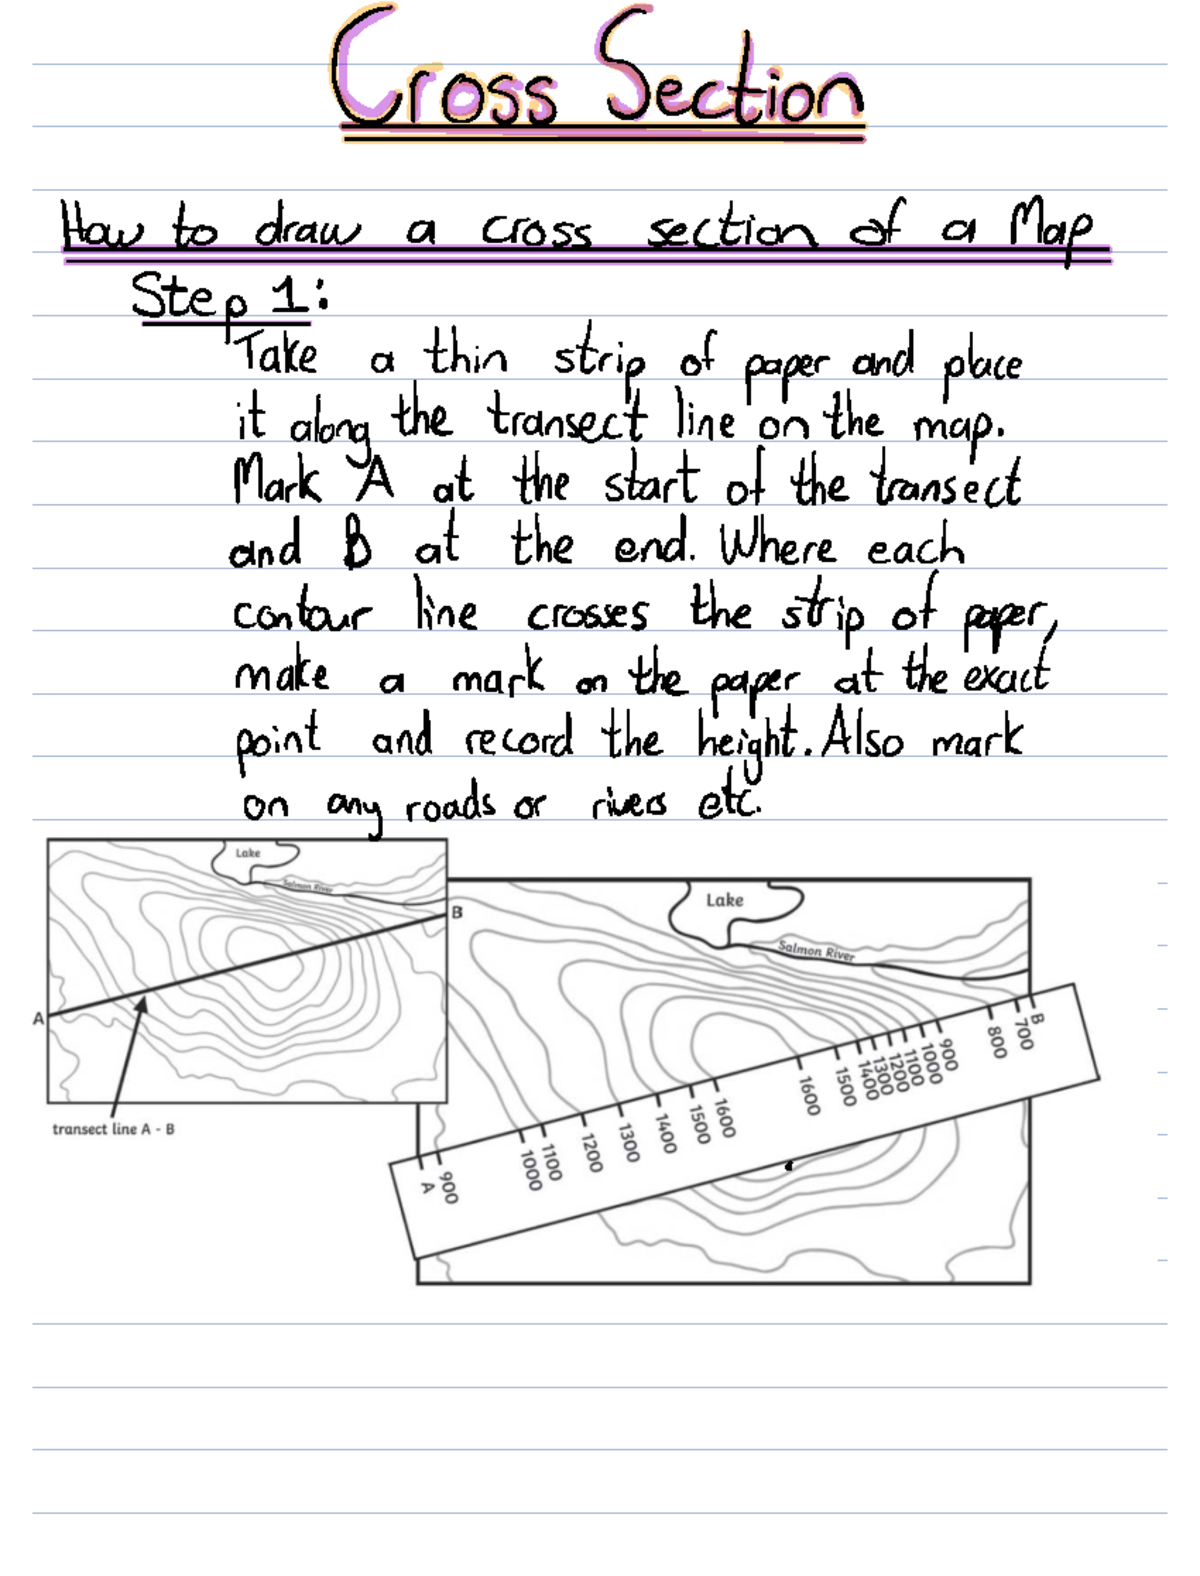 Cross Section
How to draw a cross section of a Map
Step 1:
Take a thin strip of paper and place
it along the transect line on the map.
Mark A at the start of the transect
and B at the end. Where each
contour line crosses the strip of paper,
make a mark on the paper at the exact
point and record the height. Also mark
on any roads or rivers etc.
Lake
Salmon River
B
A
transect line A - B
Lake
Salmon River
A
900
1000
1100
1200
1300
1400
1500
1600
1600
1500
1400
1300
1200
1100
1000
900
800
700
B